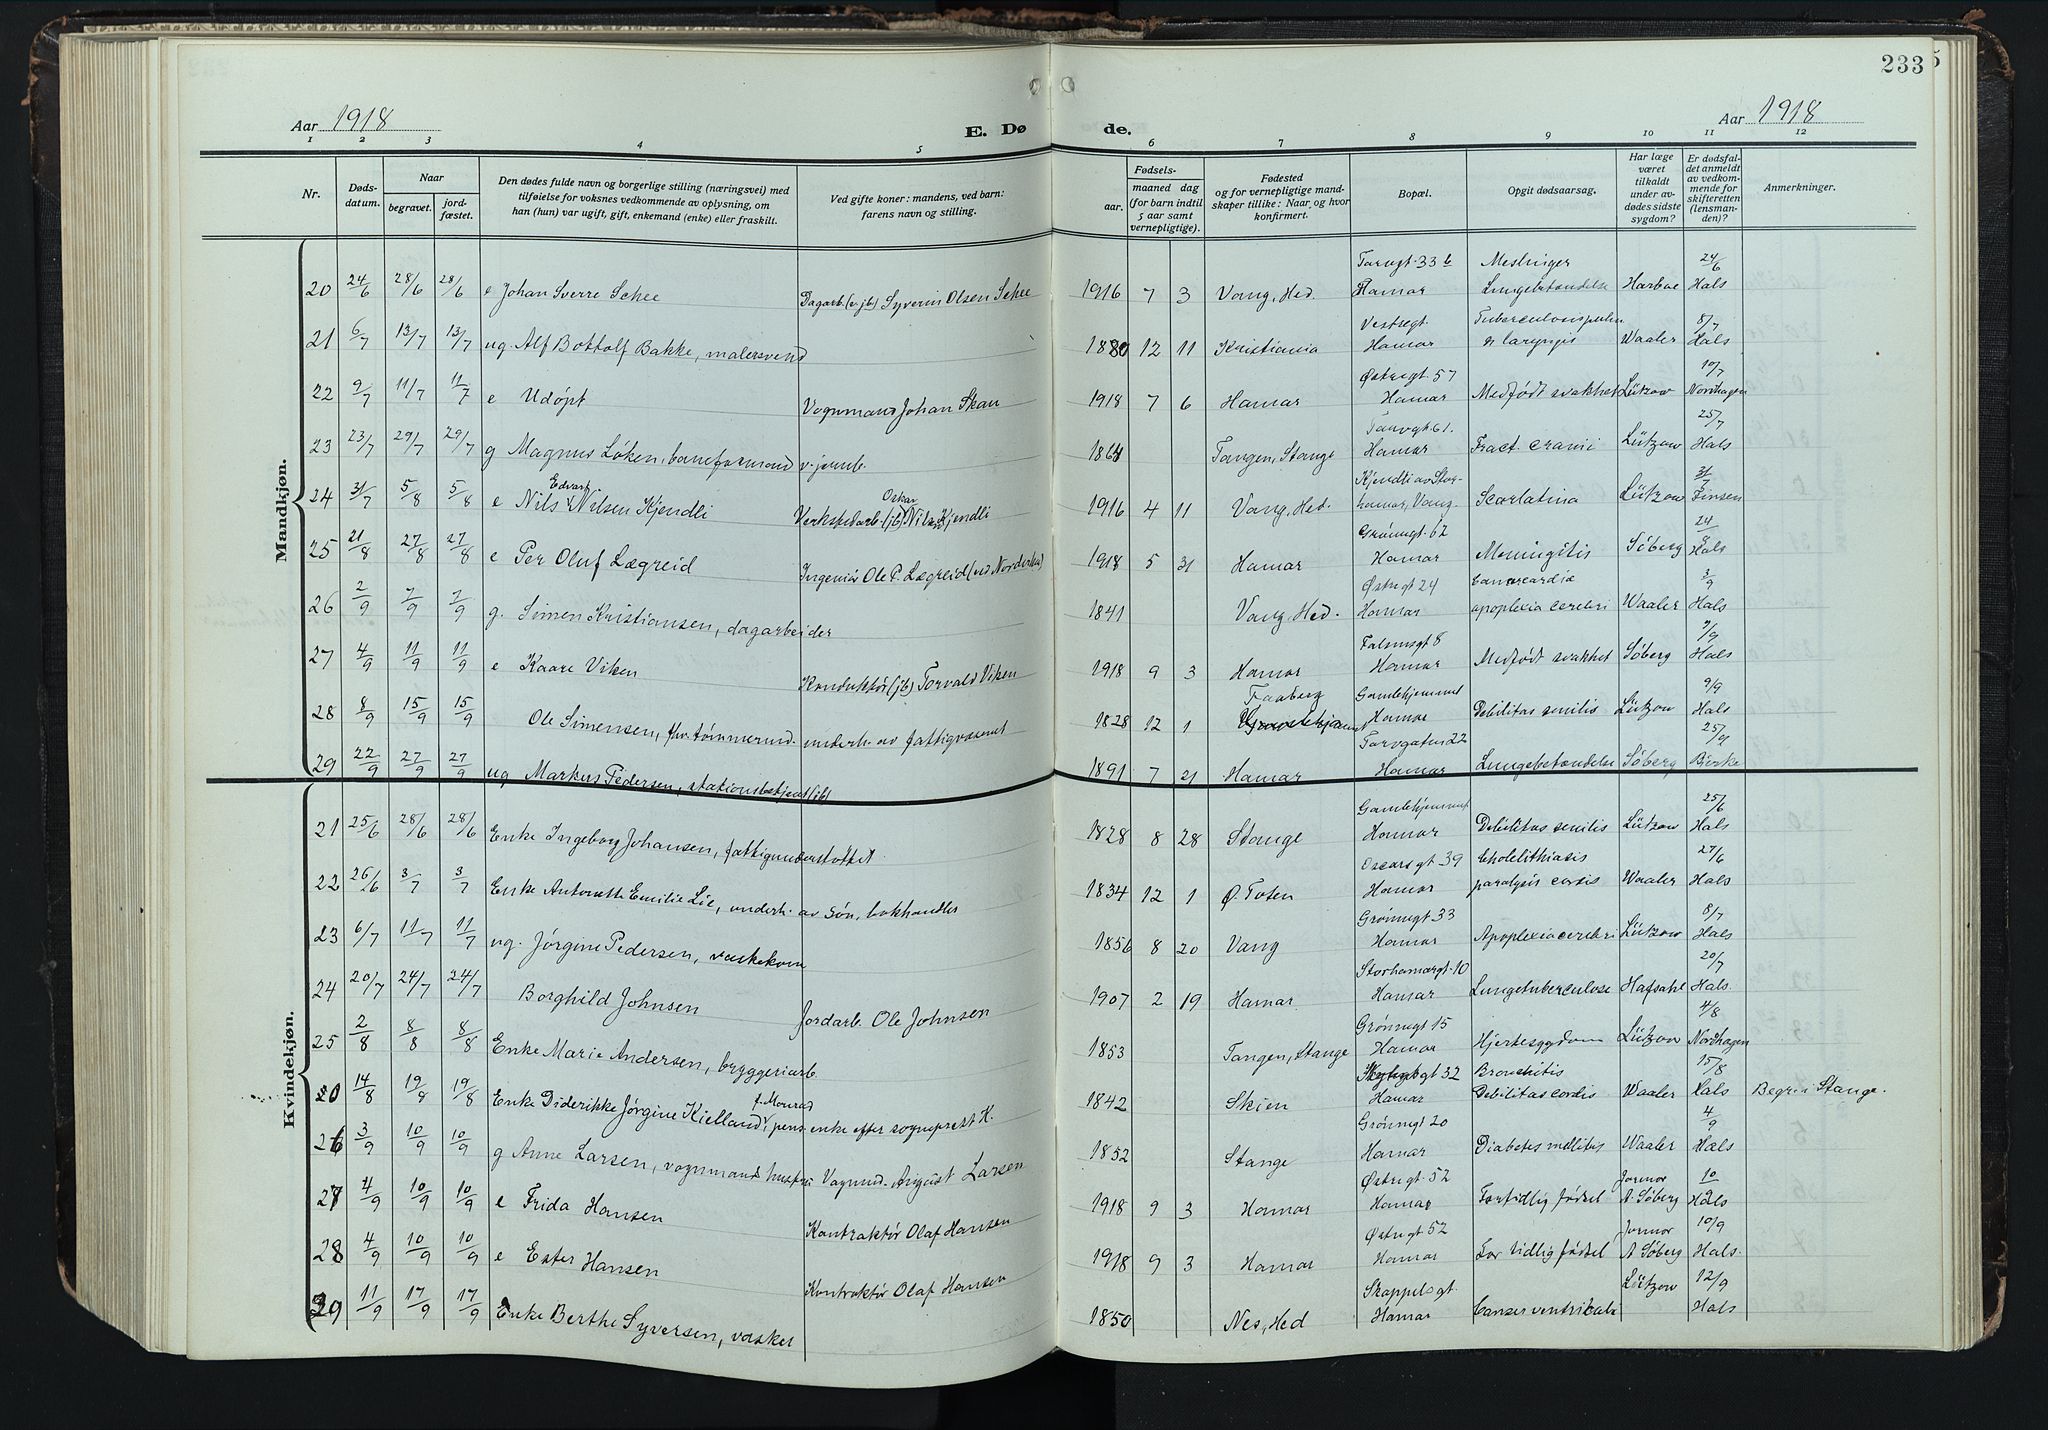 233
Aar 1918
E. Dø de.
Aar 1918
1 2 3 4 5 6 7 8 9 10 11 12
Nr.
Døds-
datum.
Naar
begravet.
jord-
fæstet.
Den dødes fulde navn og borgerlige stilling (næringsvei) med
tilføielse for voksnes vedkommende av oplysning, om
han (hun) var ugift, gift, enkemand (enke) eller fraskilt.
Ved gifte koner: mandens, ved barn:
farens navn og stilling.
Fødsels-
aar.
maaned dag
(for barn indtil
5 aar samt
vernepligtige).
Fødested
og for vernepligtige mand-
skaper tillike: Naar, og hvor
konfirmert.
Bopæl.
Opgit dødsaarsag.
Har læge
været
tilkaldt
under av-
dødes sidste
sygdom?
Er dødsfal-
det anmeldt
av vedkom-
mende for
skifteretten
(lensman-
den)?
Anmerkninger.
Mandkjøn.
20 24/6 28/6 28/6 e Johan Sverre Schee Dagarb. (v. jb) Syverin Olsen Schee 1916 7 3 Vang, Hed. Torvgt. 33 b Hamar Meslinger Lungebetændelse Harboe 24/6 Hals
21 6/7 13/7 13/7 ug. Alf Bottolf Bakke, malersvend 1880 12 11 Kristiania Vestregt. Hamar laryngis Waaler 8/7 Hals
22 9/7 11/7 11/7 e Udøpt Vognmand Johan Skau 1918 7 6 Hamar Østregt 57 Hamar Medfødt svakhet Lützow 10/7 Nordhagen
23 23/7 29/7 29/7 g Magnus Løken, baneformand v. jernb. 1864 Tangen, Stange Torvgt. 61. Hamar Fract. cranii Lützow 25/7 Hals
24 31/7 5/8 5/8 e Nils Edvart Nilsen Kjendli Verkstedarb (jb) Oskar Nilsen Kjendli 1916 4 11 Vang, Hed. Kjendli av Stor-
hamar, Vang. Scarlatina Lützow 31/7 Finsen
25 21/8 27/8 27/8 e Per Oluf Lægreid Ingeniør Ole P. Lægreid 1918 5 31 Hamar Grønnegt. 62 Hamar Meningitis Søberg 24/8 Hals
26 2/9 7/9 7/9 g. Simen Kristiansen, dagarbeider 1841 Vang, Hed. Østregt 24 Hamar apoplexia cerebri Waaler 3/9 Hals
27 4/9 11/9 11/9 e Kaare Viken Konduktør (jb) Torvald Viken 1918 9 3 Hamar Falsensgt 8 Hamar Medfødt svakhet Søberg 7/9 Hals
28 8/9 15/9 15/9 Ole Simensen, fhv. tømmermd. underh. av fattigvæsenet 1828 12 1 Faaberg Gamlehjemmet Hamar Debilitas senilis Lützow 9/9 Hals
29 22/9 27/9 27/9 ug Markus Pedersen, stationsbetjent (jb) 1891 7 21 Hamar Torvgaten 22 Hamar Lungebetændelse Søberg 25/9 Bjerke
Kvindekjøn.
21 25/6 28/6 28/6 Enke Ingeborg Johansen, fattigunderstøttet 1828 8 28 Stange Gamlehjemmet Hamar Debilitas senilis Lützow 25/6 Hals
22 26/6 3/7 3/7 Enke Antonette Emilie Lie, underh. av søn, bokhandler 1834 12 1 Ø. Toten Oscarsgt 39 Hamar Cholelithiasis paralysis cordis Waaler 27/6 Hals
23 6/7 11/7 11/7 ug. Jørgine Pedersen, vaskekone 1856 8 20 Vang Grønnegt 33 Hamar Apoplexia cerebri Lützow 8/7 Hals
24 20/7 24/7 24/7 Borghild Johnsen Jordarb. Ole Johnsen 1907 2 19 Hamar Storhamargt. 10 Hamar Lungetuberculose Hafsahl 20/7 Hals
25 2/8 8/8 8/8 Enke Marie Andersen, bryggeriarb. 1853 Tangen, Stange Grønnegt 15 Hamar Hjertesygdom Lützow 4/8 Nordhagen
20 14/8 19/8 19/8 Enke Diderikke Jørgine Kielland f. Monrad, pens. enke efter sogneprest K. 1842 Skien 32 Hamar Bronchitis Debilitas cordis Waaler 15/8 Hals Begr. i Stange.
26 3/9 10/9 10/9 g Anne Larsen, vognmands hustru Vognmd. August Larsen 1852 Stange Grønnegt 20 Hamar Diabetes mellitus Waaler 4/9 Hals
27 4/9 10/9 10/9 e Frida Hansen Kontraktør Olaf Hansen 1918 9 3 Hamar Østregt. 52 Hamar For tidlig fødsel Jormor A. Søberg 10/9 Hals
28 4/9 10/9 10/9 e Ester Hansen Kontraktør Olaf Hansen 1918 9 3 Hamar Østregt 52 Hamar For tidlig fødsel Jormor A Søberg 10/9 Hals.
29 11/9 17/9 17/9 Enke Berthe Syversen, vasker 1850 Nes, Hed Skappelsgt. Hamar Cancer ventriculi Lützow 12/9 Hals